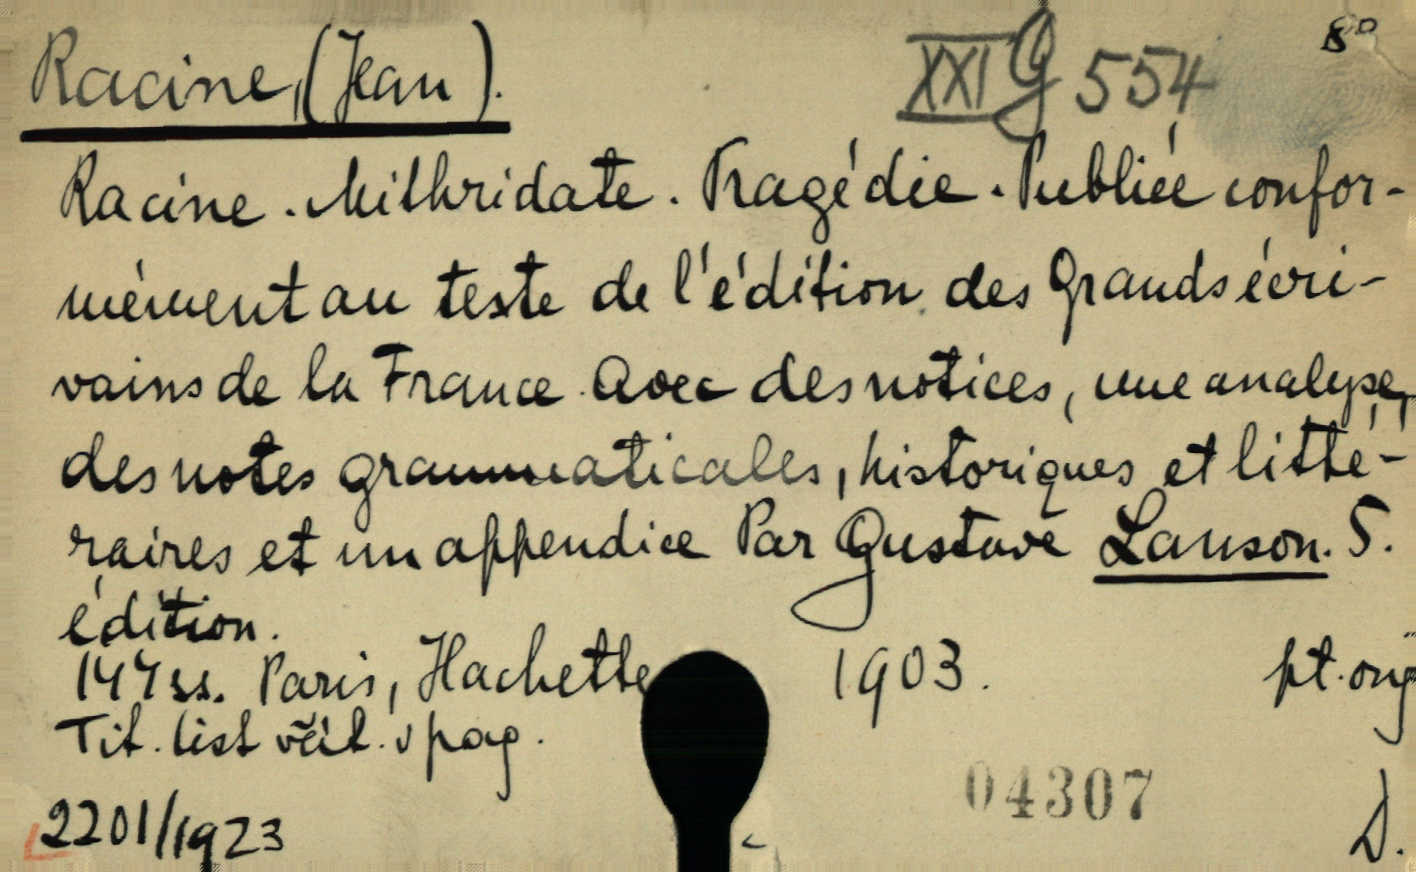 Racine, (Jean). XXI G 554 8°
Racine. Mithridate. Tragédie. Publiée confor-
mément au texte de l'édition des Grands écri-
vains de la France. Avec des notices, une analyse,
des notes grammaticales, historiques et litté-
raires et un appendice Par Gustave Lanson. 5.
édition.
147 ss. Paris, Hachette 1903. pt. orig
Tit. list včít. v pag.
04307
2201/1923 D.